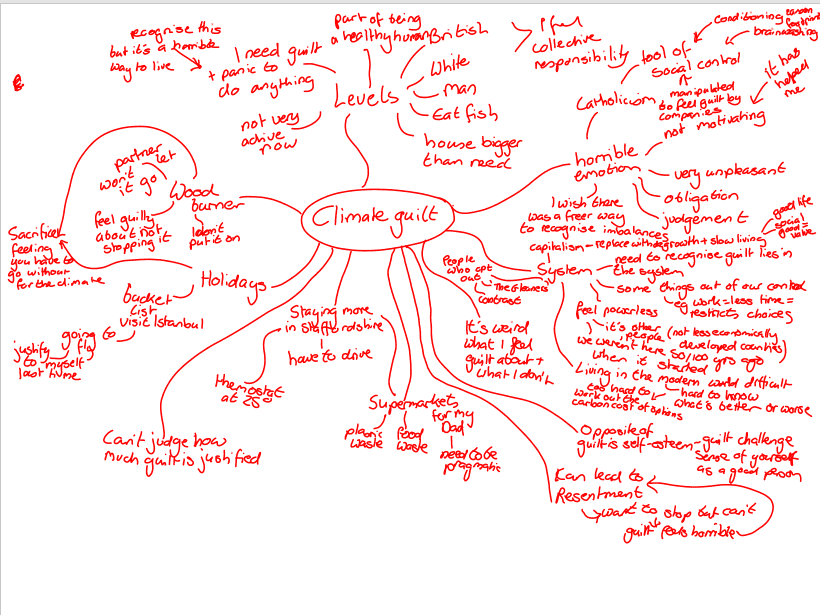 Climate guilt
Levels
part of being
a healthy human
British
White
man
Eat fish
house bigger
than need
not very
active
now
I need guilt
+ panic to
do anything
recognise this
but it's a horrible
way to live
I feel
collective
responsibility
horrible
emotion
Catholicism
tool of
social control
conditioning
carbon
footprint
brainwashing
manipulated
to feel guilt by
companies
not motivating
it has
helped
me
very unpleasant
obligation
judgement
I wish there
was a freer way
to recognise imbalances
System
capitalism - replace with degrowth + slow living
good life
social
good =
value
need to recognise guilt lies in
the system
some things out of our control
eg work = less time =
restricts choices
feel powerless
it's other
people (not less economically
developed countries)
we weren't here 50/100 yrs ago
when it started
Living in the modern world difficult
too hard to
work out the
carbon cost of options
hard to know
what's better or worse
People
who opt
out
contrast
It's weird
what I feel
guilt about +
what I don't
Opposite of
guilt is self-esteem - guilt challenge
sense of yourself
as a good person
Can lead to
Resentment
want to stop but can't
guilt feels horrible
Supermarkets
plastic
waste
food
waste
for my
Dad
need to be
pragmatic
Staying more
in Staffordshire
have to drive
thermostat
at 25
Can't judge how
much guilt is justified
Holidays
bucket
list
visit Istanbul
going to
fly
justify
to myself
last time
Sacrifice
feeling
you have to
go without
for the climate
Wood
burner
partner
won't let
it go
feel guilty
about not
stopping it
I don't
put it on